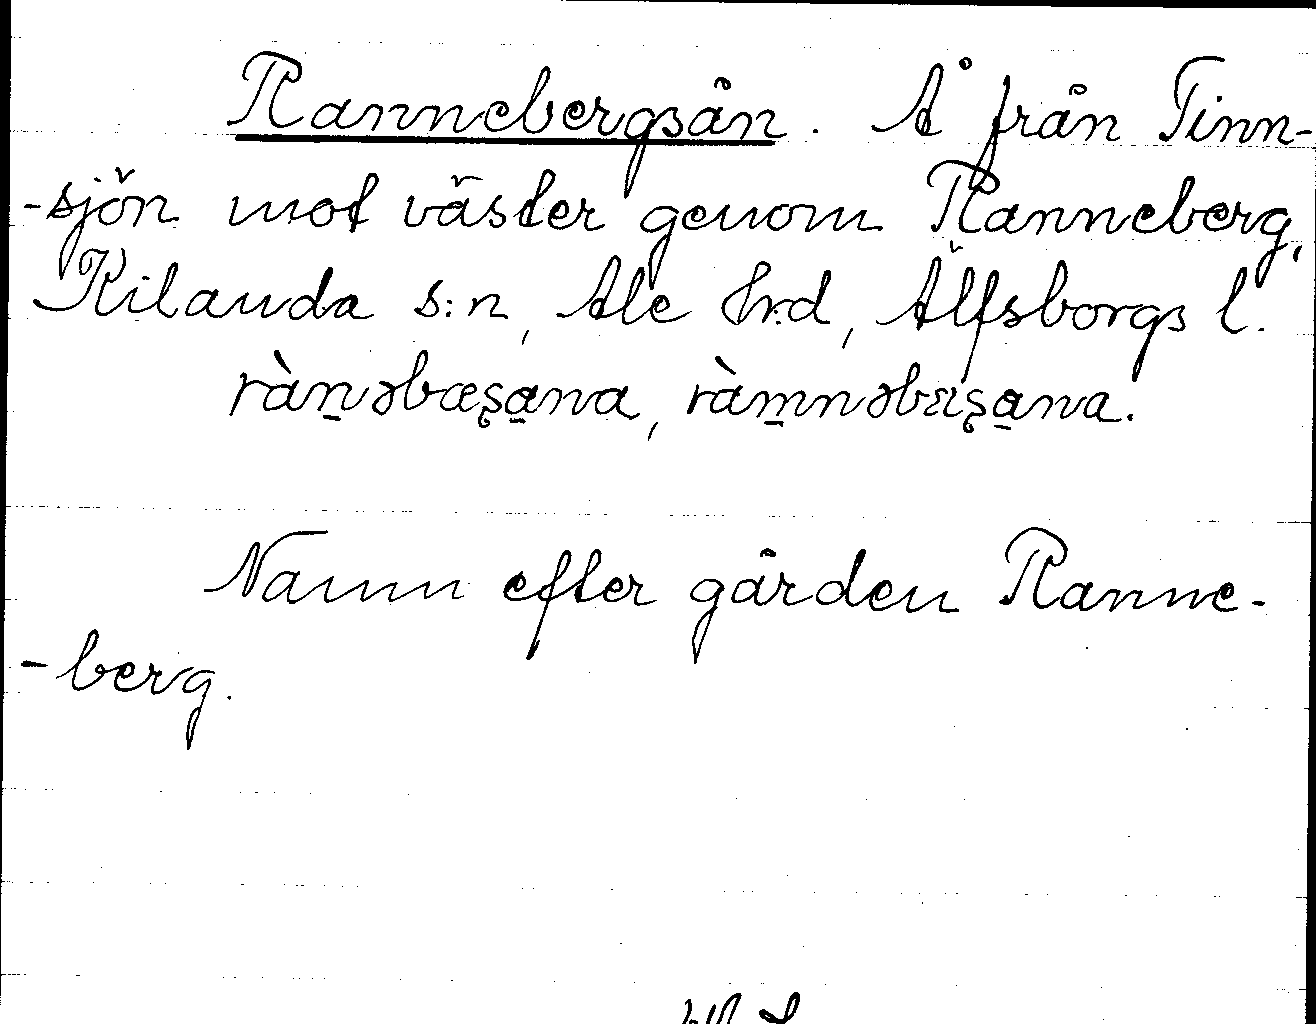 Rannebergsån. Å från Tinn-
-sjön mot väster genom Ranneberg,
Kilanda s:n, Ale h:d, Älfsborgs l.
ràn̲əbæʂa̲na, ràm̲nəbæʂa̲na.
Namn efter gården Ranne-
-berg.